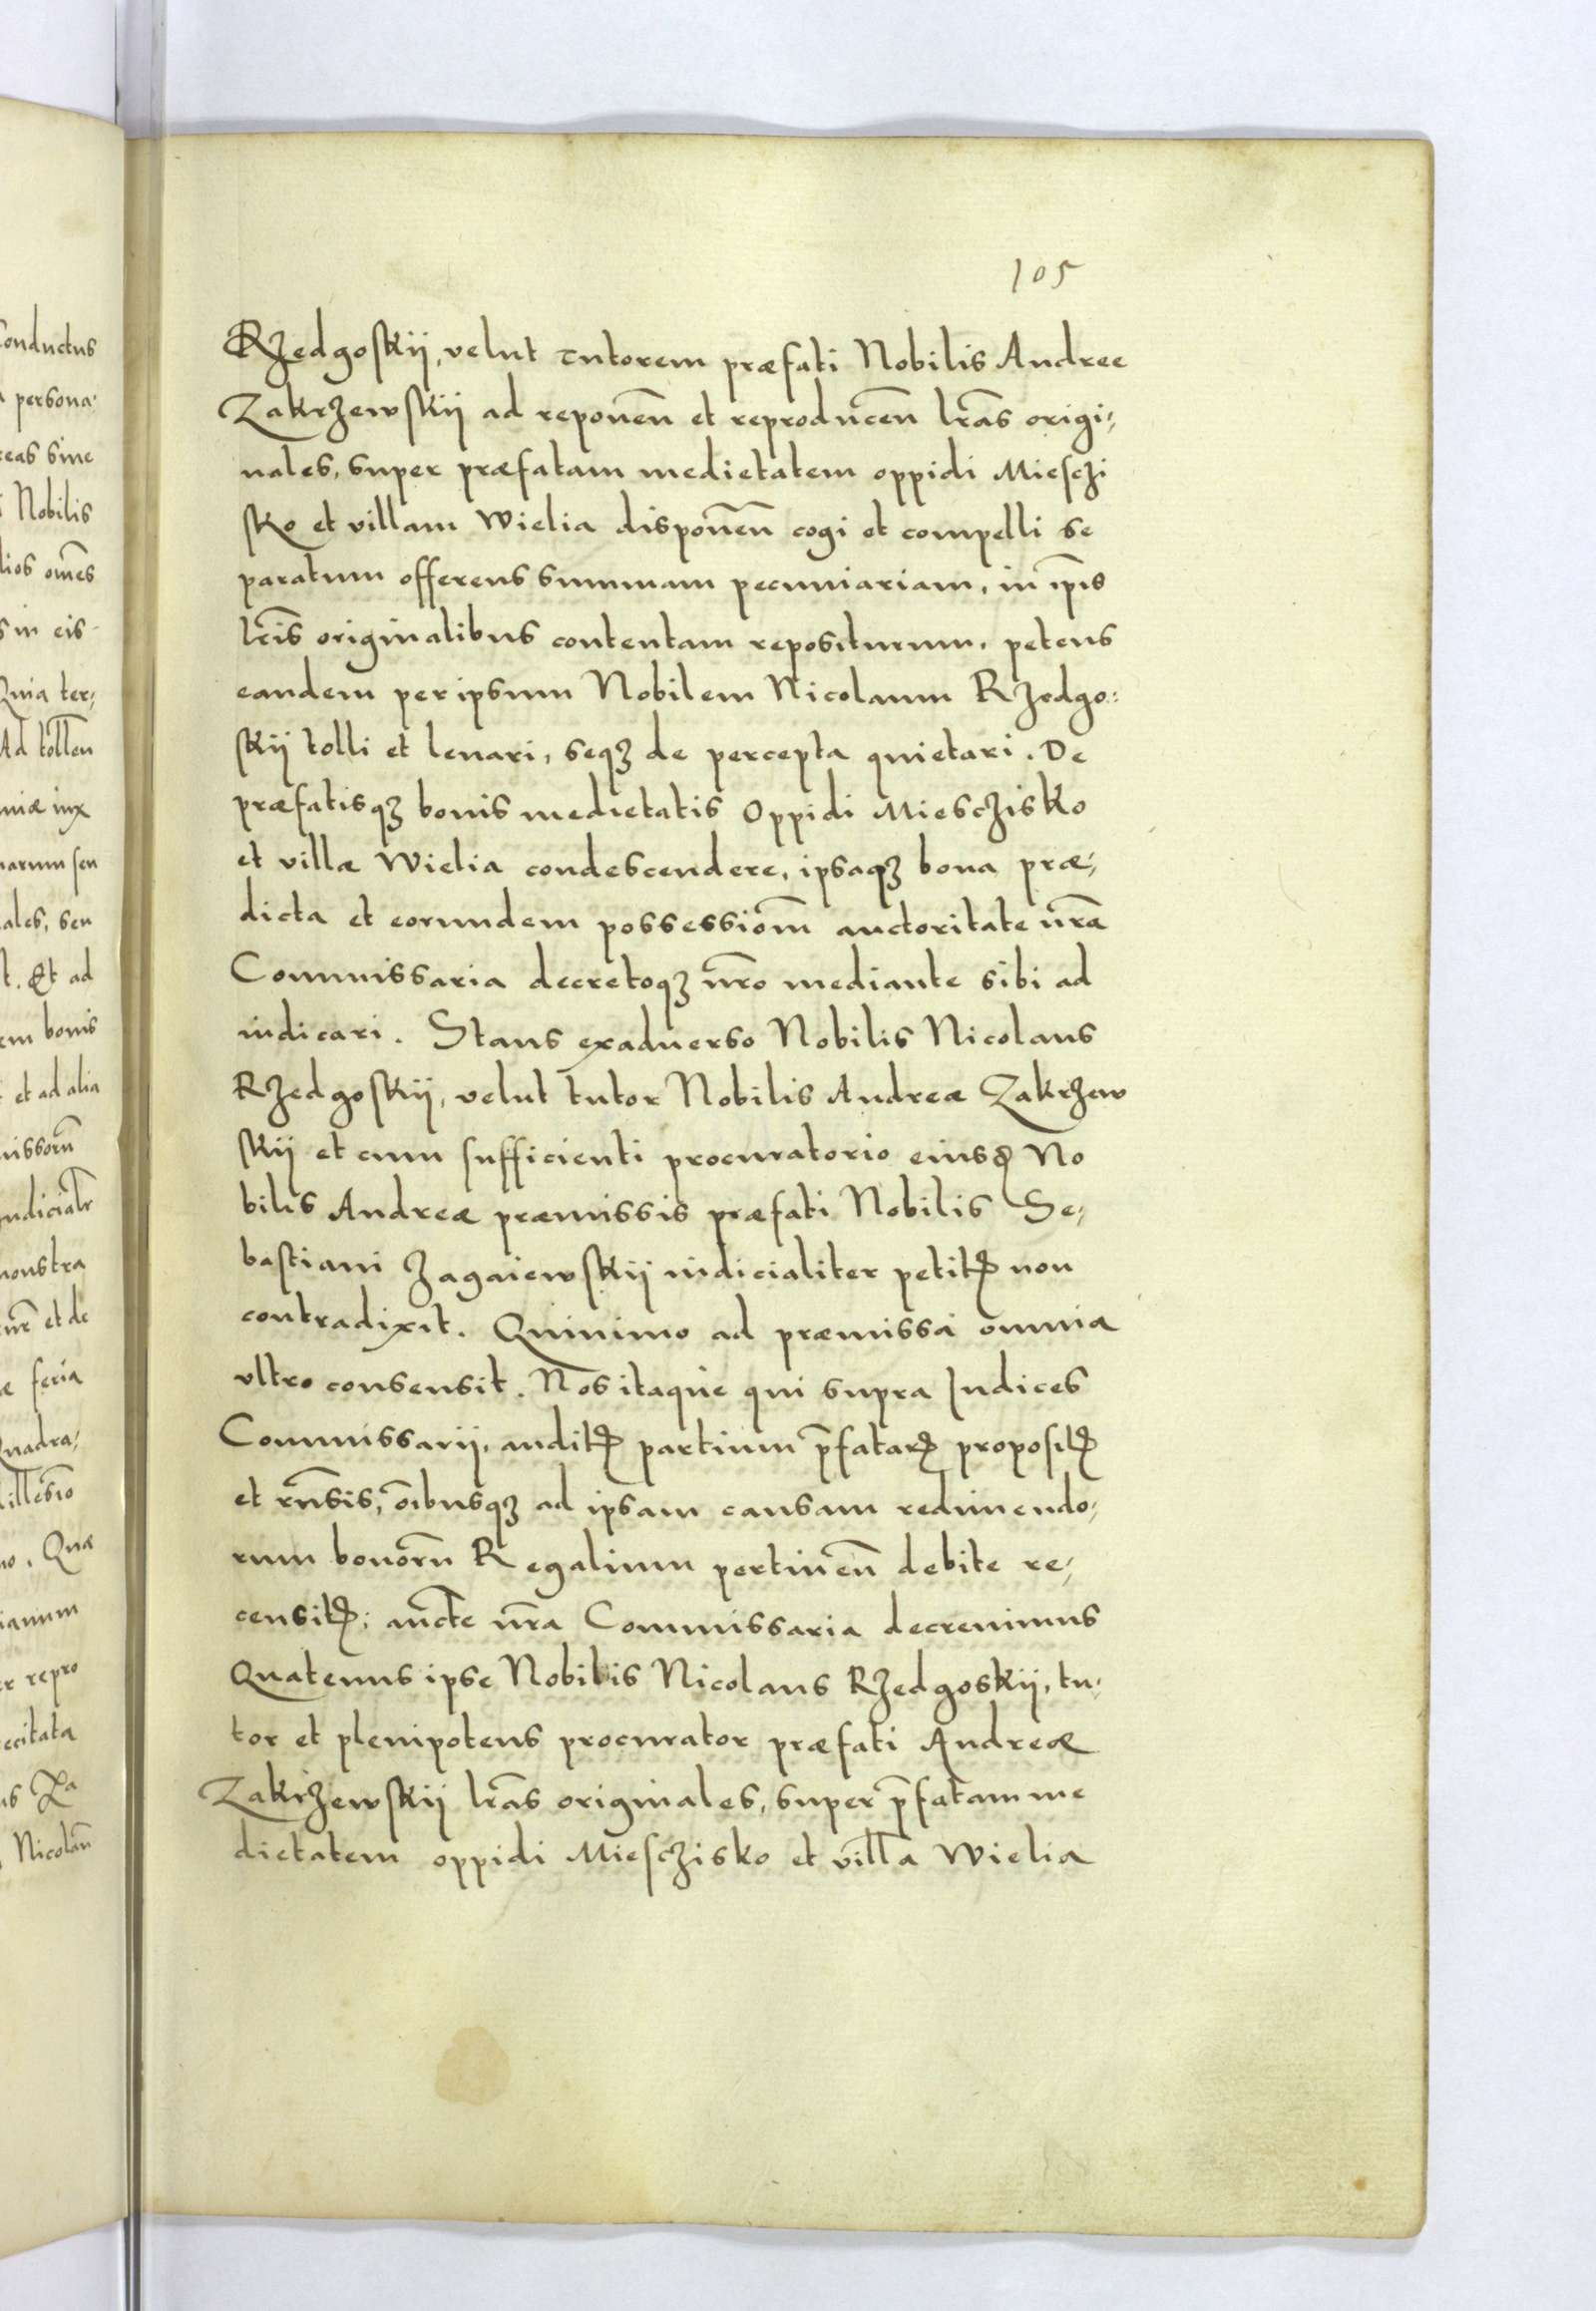 105
Rzedgoskij, velut tutorem præfati Nobilis Andree
Zakrzewskij ad reponen̄ et reproducen̄ lr̄as origi-
nales, super præfatam medietatem oppidi Miesczi
sko et villam Wielia disponen̄ cogi et compelli se
paratum offerens summam pecuniariam, in ip̄is
lr̄is originalibus contentam repositurum, petens
eandem per ipsum Nobilem Nicolaum Rzedgo:
skij tolli et leuari, seqꝫ de percepta quietari. De
præfatisqꝫ bonis medietatis Oppidi Miesczisko
et villæ Wielia condescendere, ipsaqꝫ bona præ-
dicta et eorundem possessiōm auctoritate nr̄a
Commissaria decretoqꝫ nr̄o mediante sibi ad
iudicari. Stans exaduerso Nobilis Nicolaus
Rzedgoskij, velut tutor Nobilis Andreæ Zakrzew
skij et cum sufficienti procuratorio eiusꝺ No
bilis Andreæ præmissis præfati Nobilis Se-
bastiani Zagaiewskij iudicialiter petitꝭ non
contradixit. Quinimo ad præmissa omnia
vltro consensit. Nos itaque qui supra Iudices
Commissarij, auditꝭ partium p̄fatarꝝ propositꝭ
et rn̄sis, oībusqꝫ ad ipsam causam redimendo-
rum bonorū Regalium pertinen̄ debite re-
censitꝭ; auct̄e nr̄a Commissaria decreuimus
Quatenus ipse Nobilis Nicolaus Rzedgoskij, tu-
tor et plenipotens procurator præfati Andreæ
Zakrzewskij lr̄as originales, super p̄fatam me
dietatem oppidi Miesczisko et villa Wielia